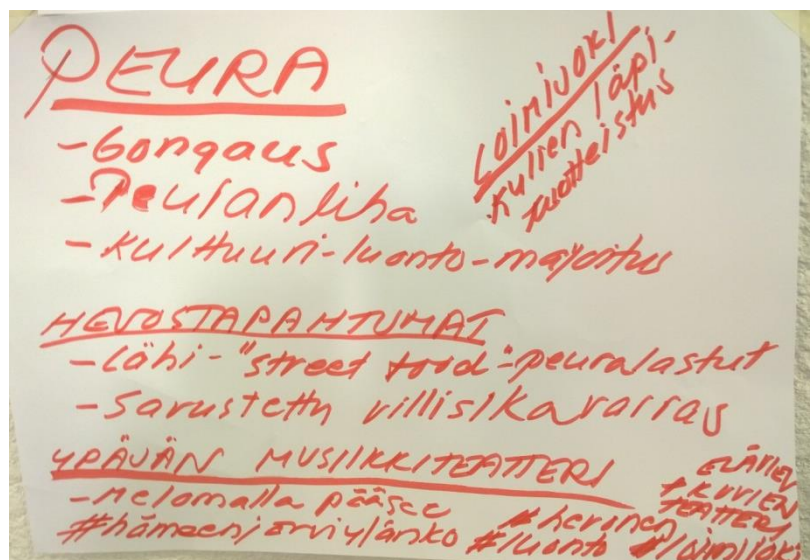 PEURA
- Bongaus
- Peuranliha
- Kulttuuri-luonto-majoitus
LOIMIJOKI
kulien läpi-
tuotteistus
HEVOSTAPAHTUMAT
- Lähi-"street food"-peuralastut
- Savustettu villisikavarras
YPÄJÄN MUSIIKKITEATTERI
- Melomalla pääsee
#hämeenjärviylänkö #hevonen
#luonto #loimijoki
ELÄVIEN
KUVIEN
TEATTERI